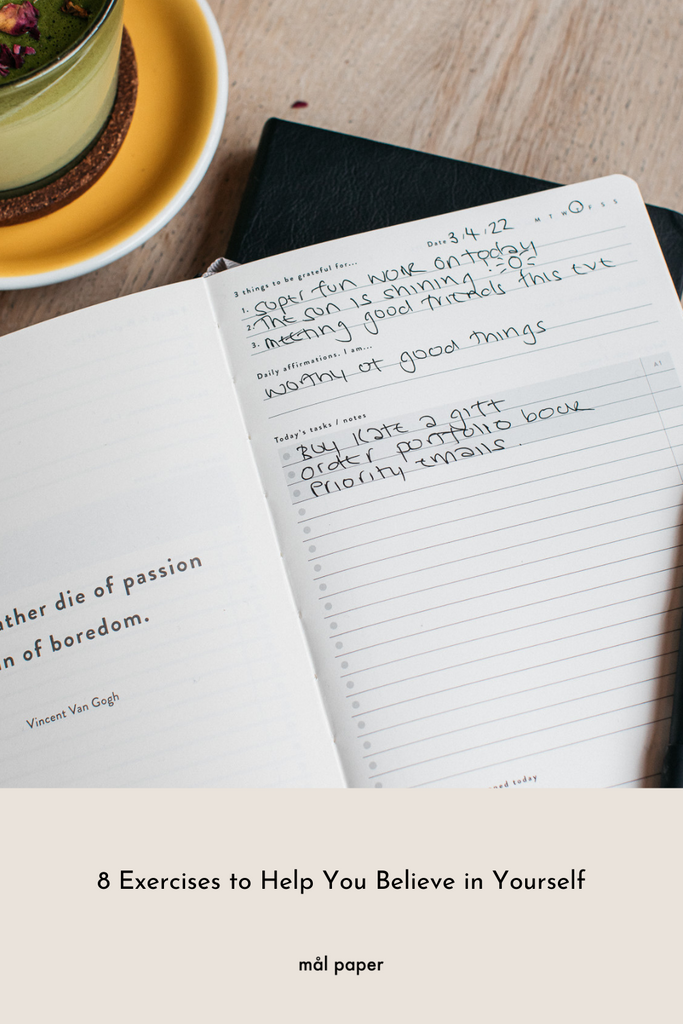 ather die of passion
n of boredom.
Vincent Van Gogh
Date 3,4,22
M T W T F S S
3 things to be grateful for...
1. super fun work on today
2. The sun is shining
3. meeting good friends this eve
Daily affirmations. I am...
worthy of good things
Today's tasks / notes
A1
Buy Kate a gift
order portfolio book
Priority emails.
ned today
8 Exercises to Help You Believe in Yourself
mål paper